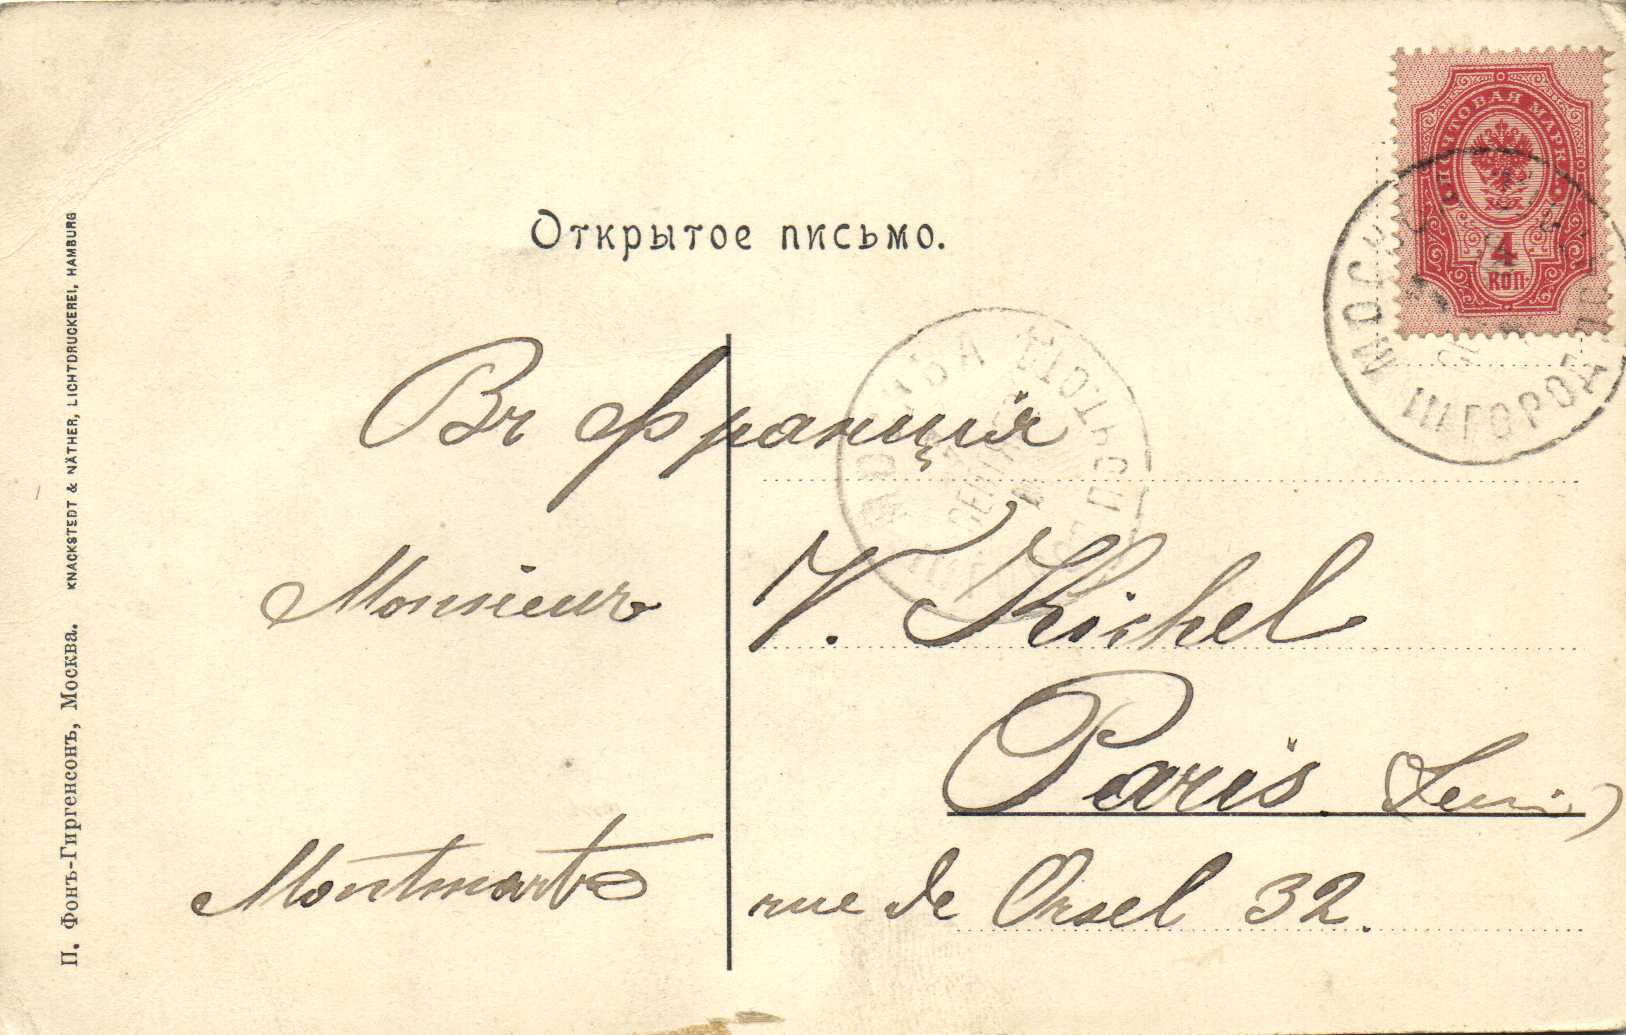 ПОЧТОВАЯ МАРКА
4
КОП.
Открытое письмо.
Въ Францiя
Monsieur V. Kichel
Paris
Montmartre rue de Orsel 32.
П. Фонъ-Гиргенсонъ, Москва. KNACKSTEDT & NÄTHER, LICHTDRUCKEREI, HAMBURG
МОСКВА
III ГОРОД